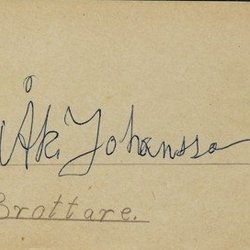 Åke Johansson
Brottare.